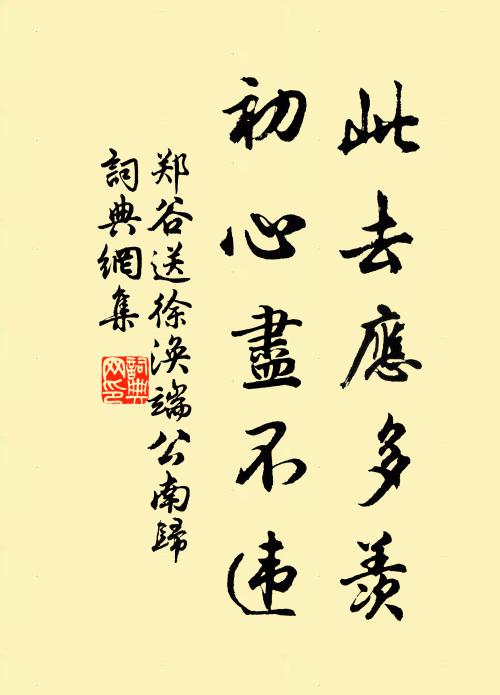 此去應多羨
初心盡不违
郑谷送徐涣端公南歸
詞典網集
詞典網印